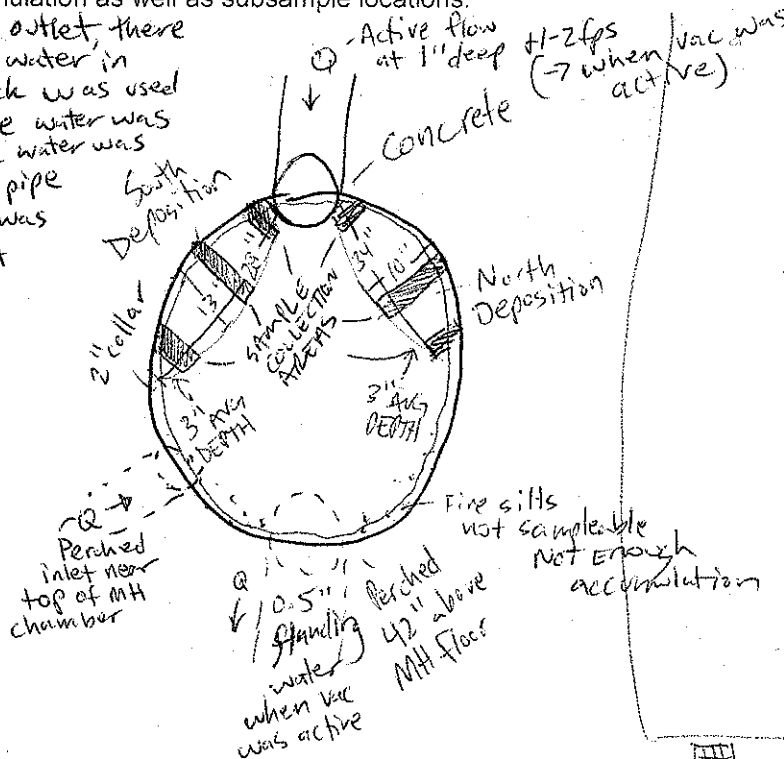 ulation as well as subsample locations.
outlet, there
water in
k was used
e water was
water was
pipe
was
Q
Active flow
at 1" deep
+/- 2 fps
(→ when vac was
active)
Concrete
South
Deposition
28"
13"
34"
10"
North
Deposition
SAMPLE
COLLECTION
AREAS
2" collar
3" AVG
DEPTH
3" AVG
DEPTH
Q →
Perched
inlet near
top of MH
chamber
Fine silts
not sampleable
Not Enough
accumulation
Q
0.5"
Standing
water
when vac
was active
Perched
42" above
MH floor